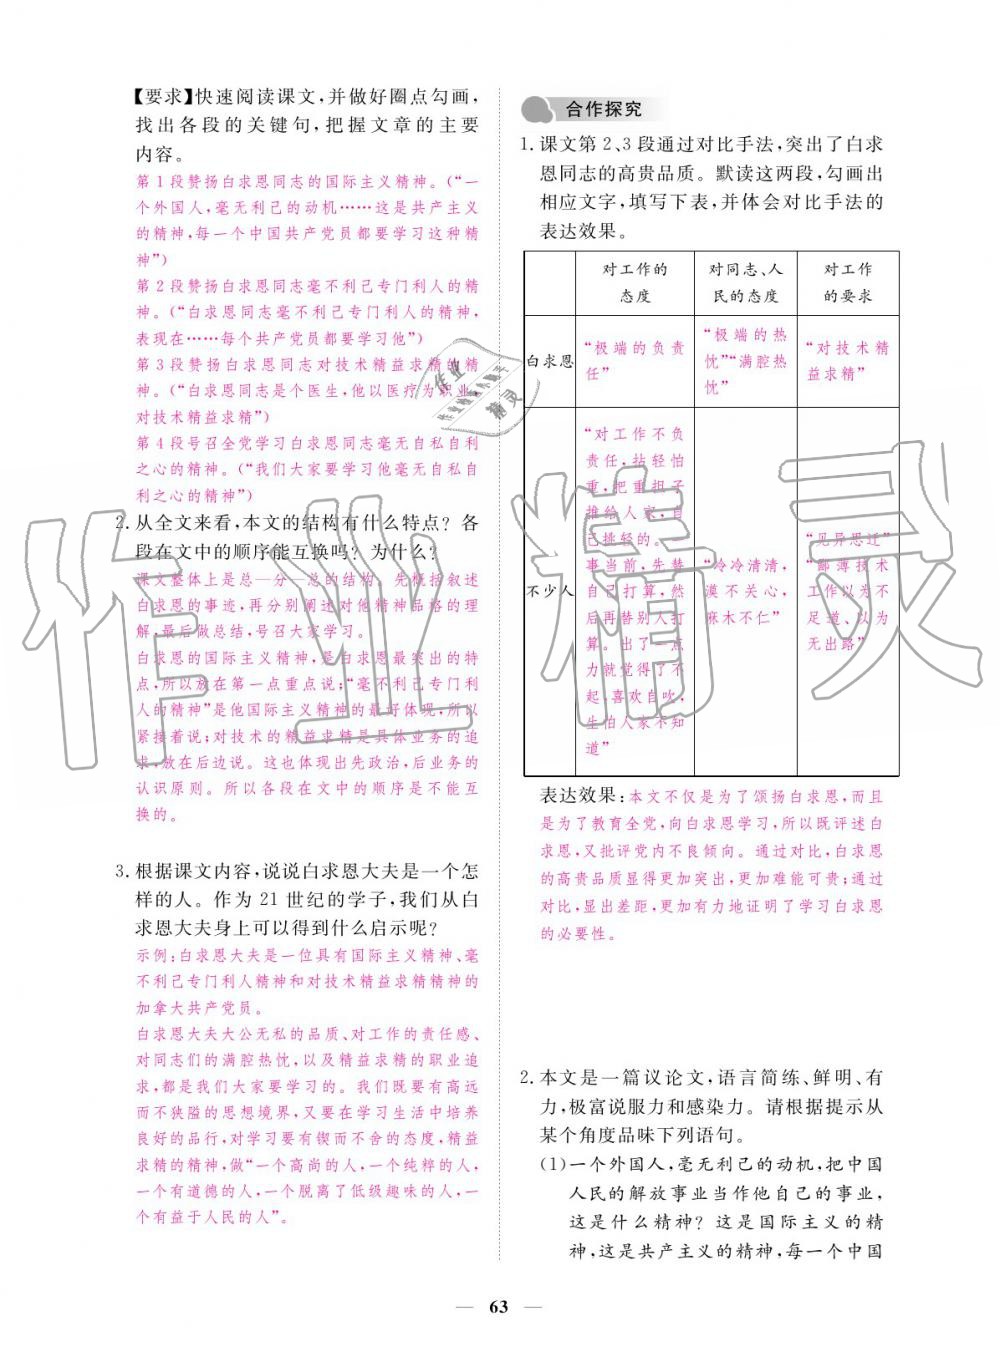 【要求】快速阅读课文,并做好圈点勾画,
找出各段的关键句,把握文章的主要
内容。
第1段赞扬白求恩同志的国际主义精神。(“一
个外国人,毫无利己的动机……这是共产主义
的精神,每一个中国共产党员都要学习这种精
神”)
第2段赞扬白求恩同志毫不利己专门利人的精
神。(“白求恩同志毫不利己专门利人的精神,
表现在……每个共产党员都要学习他”)
第3段赞扬白求恩同志对技术精益求精的精
神。(“白求恩同志是个医生,他以医疗为职业,
对技术精益求精”)
第4段号召全党学习白求恩同志毫无自私自利
之心的精神。(“我们大家要学习他毫无自私自
利之心的精神”)
2. 从全文来看,本文的结构有什么特点？各
段在文中的顺序能互换吗？为什么？
课文整体上是总—分—总的结构。先概括叙述
白求恩的事迹,再分别阐述对他精神品格的理
解,最后做总结,号召大家学习。
白求恩的国际主义精神,是白求恩最突出的特
点,所以放在第一点重点说;“毫不利己专门利
人的精神”是他国际主义精神的最好体现,所以
紧接着说;对技术的精益求精是具体业务的追
求,放在后边说。这也体现出先政治,后业务的
认识原则。所以各段在文中的顺序是不能互
换的。
3. 根据课文内容,说说白求恩大夫是一个怎
样的人。作为21世纪的学子,我们从白
求恩大夫身上可以得到什么启示呢？
示例:白求恩大夫是一位具有国际主义精神、毫
不利己专门利人精神和对技术精益求精精神的
加拿大共产党员。
白求恩大夫大公无私的品质、对工作的责任感、
对同志们的满腔热忱,以及精益求精的职业追
求,都是我们大家要学习的。我们既要有高远
而不狭隘的思想境界,又要在学习生活中培养
良好的品行,对学习要有锲而不舍的态度,精益
求精的精神,做“一个高尚的人,一个纯粹的人,
一个有道德的人,一个脱离了低级趣味的人,一
个有益于人民的人”。
合作探究
1. 课文第2、3段通过对比手法,突出了白求
恩同志的高贵品质。默读这两段,勾画出
相应文字,填写下表,并体会对比手法的
表达效果。
对工作的
态度
对同志、人
民的态度
对工作
的要求
白求恩
“极端的负责
任”
“极端的热
忱”“满腔热
忱”
“对技术精
益求精”
不少人
“对工作不负
责任,拈轻怕
重,把重担子
推给人家,自
己挑轻的。一
事当前,先替
自己打算,然
后再替别人打
算。出了一点
力就觉得了不
起,喜欢自吹,
生怕人家不知
道”
“冷冷清清,
漠不关心,
麻木不仁”
“见异思迁”
“鄙薄技术
工作以为不
足道、以为
无出路”
表达效果:本文不仅是为了颂扬白求恩,而且
是为了教育全党,向白求恩学习,所以既评述白
求恩,又批评党内不良倾向。通过对比,白求恩
的高贵品质显得更加突出,更加难能可贵;通过
对比,显出差距,更加有力地证明了学习白求恩
的必要性。
2. 本文是一篇议论文,语言简练、鲜明、有
力,极富说服力和感染力。请根据提示从
某个角度品味下列语句。
(1)一个外国人,毫无利己的动机,把中国
人民的解放事业当作他自己的事业,
这是什么精神？这是国际主义的精
神,这是共产主义的精神,每一个中国
— 63 —
作业精灵